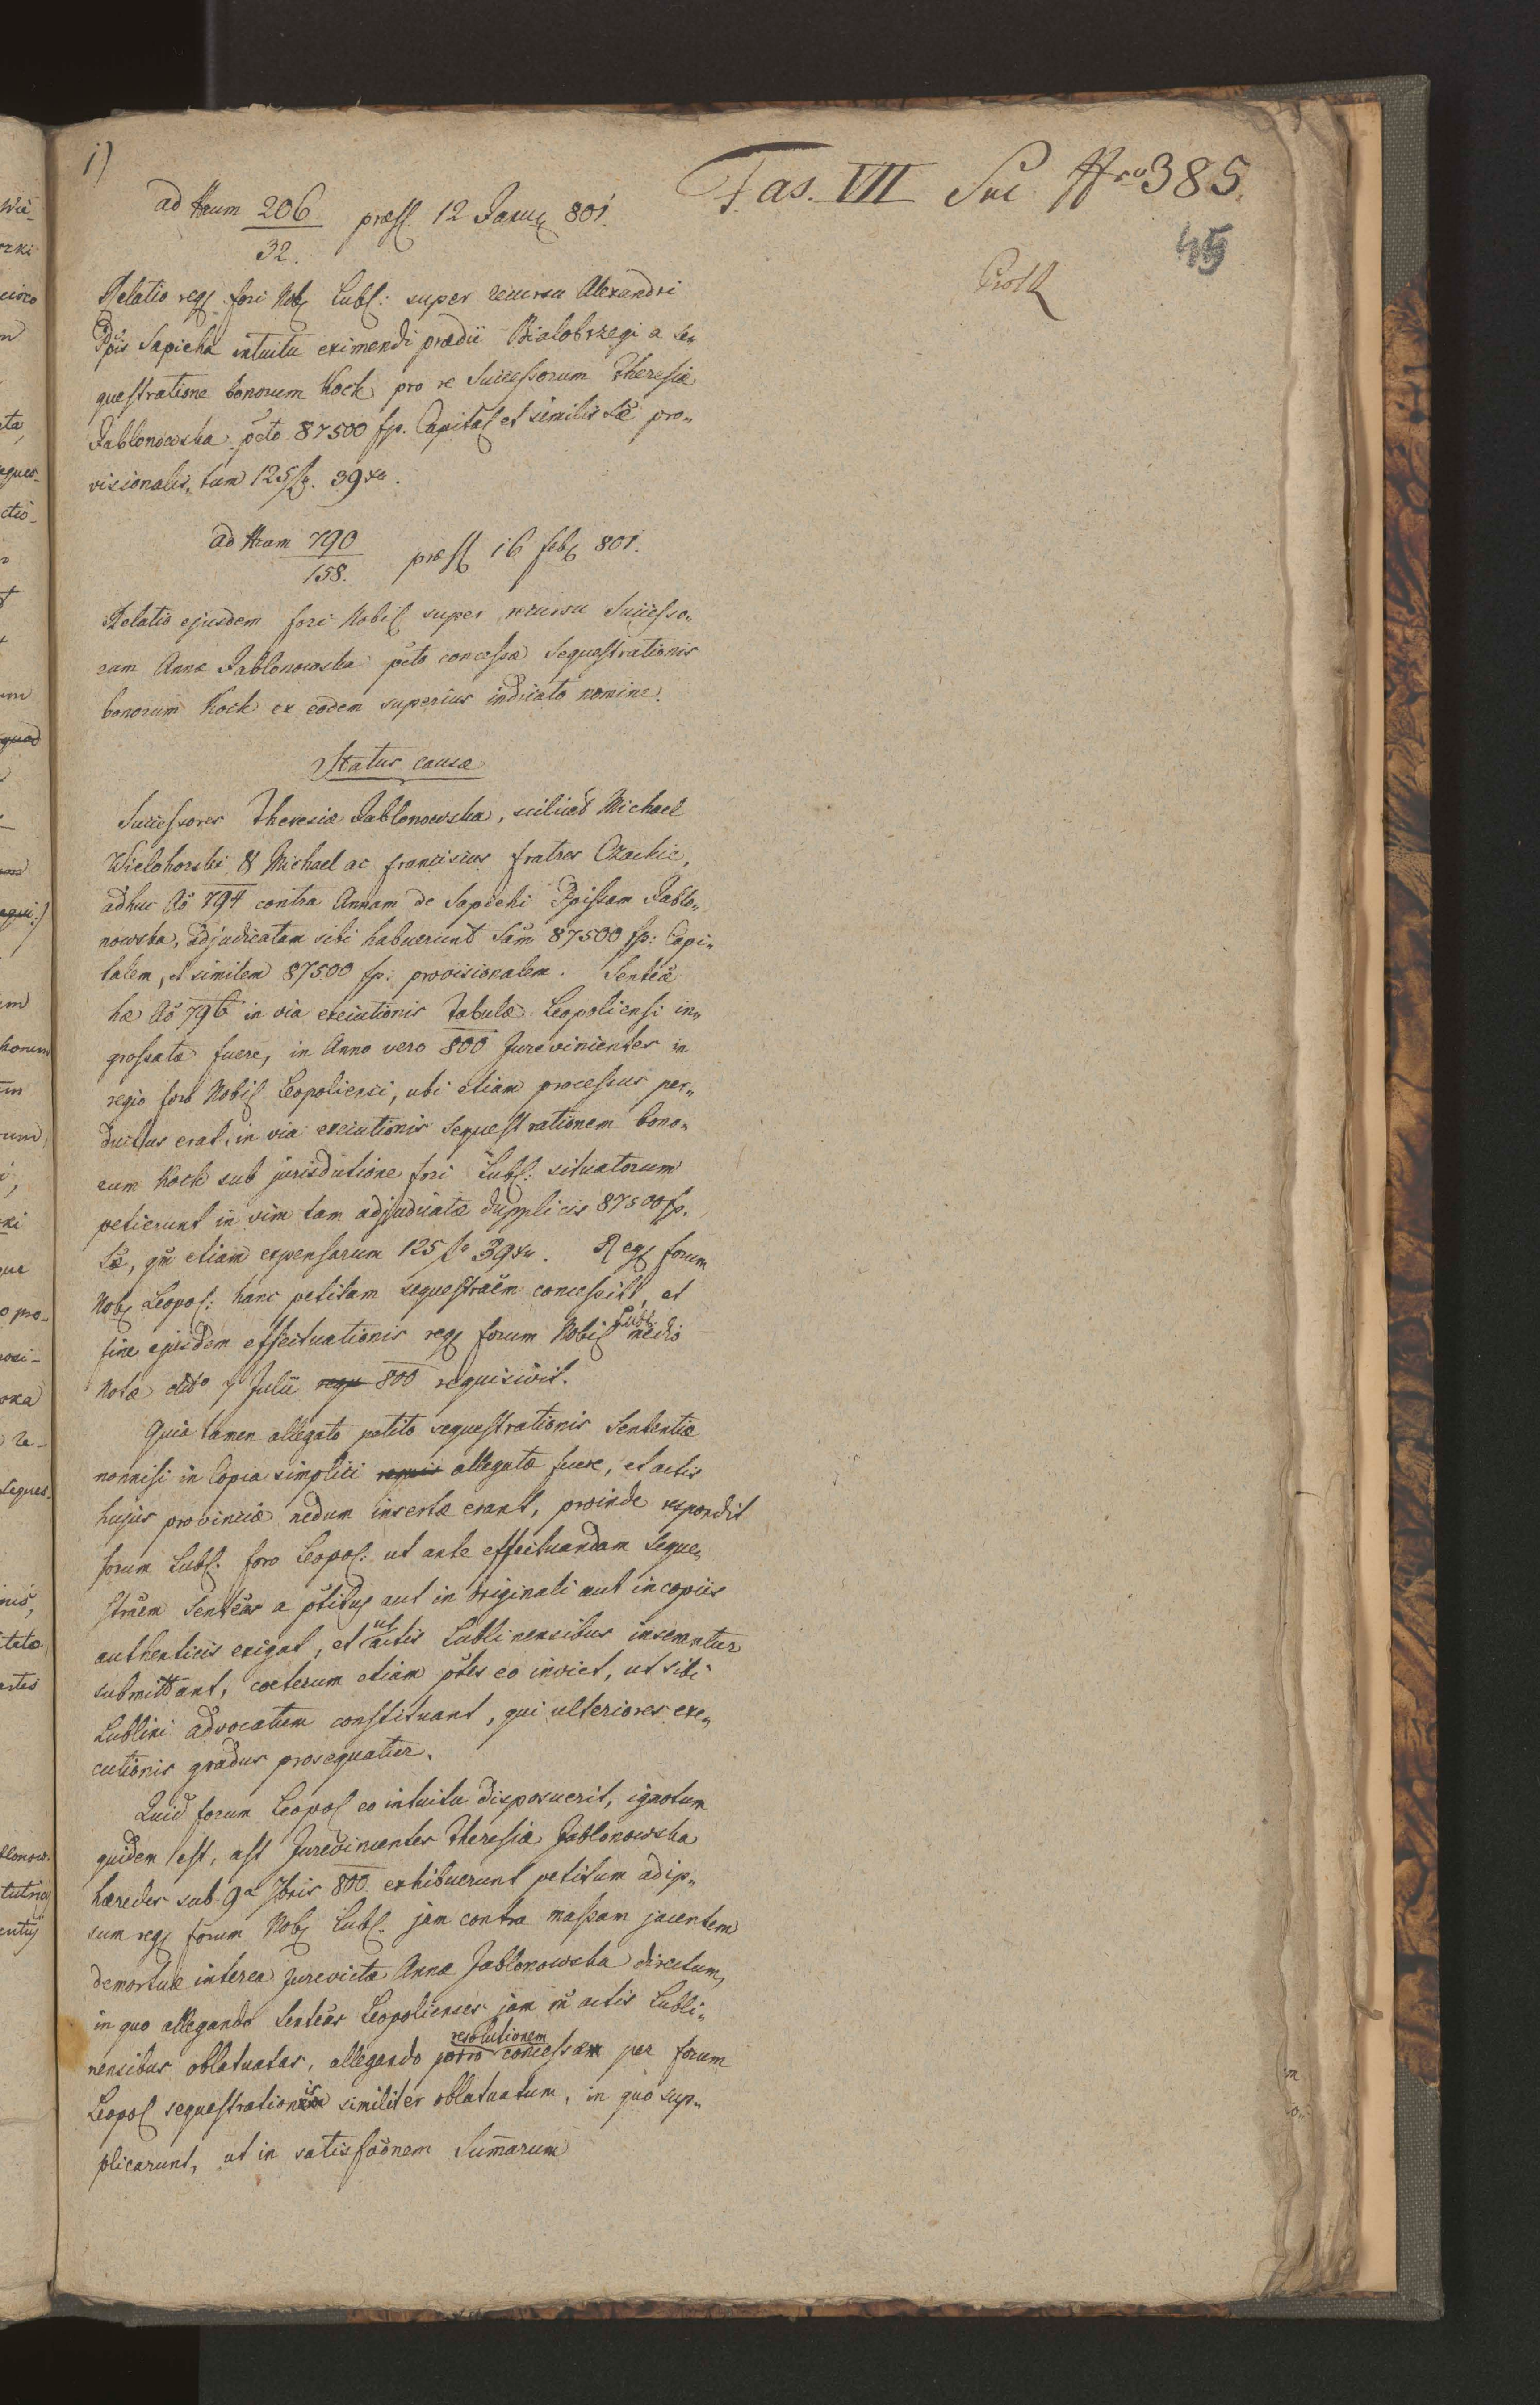 1)
Fas. VII Suc Nro 385.
45
ad Nrum 206/32. præs. 12 Janu 801.
Relatio reg fori Nob Lubl: super recursu Alexandri
Ppis Sapieha intuitu eximendi prædii Białobrzegi a se„
questratione bonorum Kock pro re Successorum Theresiæ
Jablonowska pcto 87500 fp. Capital et similis Sæ pro„
visionalis, tum 125 fr. 39 xr.
ad Nrum 790/158. præs 16 feb 801.
Relatio ejusdem fori Nobil super recursu Successo„
rum Annæ Jablonowska pcto concessæ Sequestrationis
bonorum Kock ex eodem superius indicato nomine.
Status causæ
Successores Theresiæ Jablonowska, scilicet Michael
Wielohorski & Michael ac Franciscus fratres Czackie,
adhuc Ao 794 contra Annam de Sapiehi Ppissam Jablo„
nowska, adjudicatam sibi habuerunt Sam 87500 fp: Capi„
talem, et similem 87500 fp: provisionalem. Sentiæ
hæ Ao 796 in via executionis Tabulæ Leopoliensi in„
grossatæ fuere, in Anno vero 800 Jurevincentes in
regio foro Nobil Leopoliensi, ubi etiam processus per„
ductus erat, in via executionis Sequestrationem bono„
rum Kock sub jurisdictione fori Lubl: situatorum
petierunt in vim tam adjudicatæ dupplicis 87500 fp.
Sæ, qm etiam expensarum 125 fr 39 xr. Reg forum
Nob Leopol: hanc petitam sequestraem concessit, et
fine ejusdem effectuationis reg forum Nobil Lubl medio
Notæ dtto 7 Julii requ 800 requisivit.
Quia tamen allegato petito sequestrationis Sententiæ
nonnisi in Copia simplici allegatæ fuere, et actis
hujus provinciæ nedum insertæ erant, proinde respondit
forum Lubl. foro Leopol: ut ante effectuandam Seque„
straem Senteas a ptibus aut in originali aut in copiis
authenticis exigat, et ut actis Lublinensibus inserantur
submittant, cœterum etiam ptes eo inviet, ut sibi
Lublini advocatum constituant, qui ulteriores exe„
cutionis gradus prosequatur.
Quid forum Leopol eo intuitu disposuerit, ignotum
quidem est, ast Jurevincentes Theresiæ Jablonowska
hæredes sub 9a 7bris 800 exhibuerunt petitum ad ip„
sum reg forum Nob Lubl. jam contra massam jacentem
demortuæ interea Jurevictæ Annæ Jablonowska directum,
in quo allegando Senteas Leopolienses jam in actis Lubli„
nensibus oblatuatas, allegando porro resolutionem concessæ per forum
Leopol sequestrationis similiter oblatuatum, in quo sup„
plicarunt, ut in satisfaonem Summarum